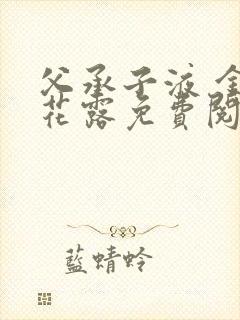 父承子液 金
花露免費閱
藍蜻蛉